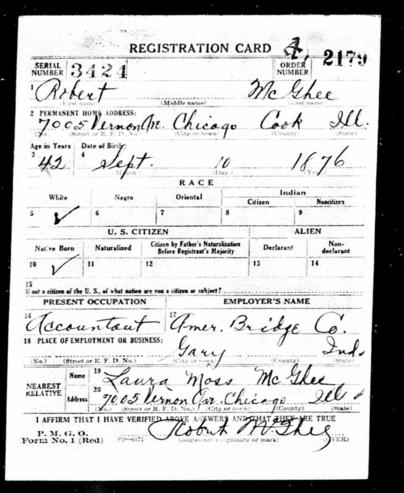 REGISTRATION CARD
SERIAL NUMBER 3424 ORDER NUMBER A, 2179
1 Robert McGhee
(First name) (Middle name) (Last name)
2 PERMANENT HOME ADDRESS:
7005 Vernon Ave. Chicago Cook Ill.
(No.) (Street or R. F. D. No.) (City or town) (County) (State)
Age in Years Date of Birth
3 42 4 Sept. 10 1876
(Month) (Day) (Year)
RACE
White Negro Oriental Indian
Citizen Noncitizen
5 ✓ 6 7 8 9
U. S. CITIZEN ALIEN
Native Born Naturalized Citizen by Father's Naturalization Before Registrant's Majority Declarant Non-declarant
10 ✓ 11 12 13 14
15
If not a citizen of the U. S., of what nation are you a citizen or subject?
PRESENT OCCUPATION EMPLOYER'S NAME
16 Accountant 17 Amer. Bridge Co.
18 PLACE OF EMPLOYMENT OR BUSINESS:
Gary Ind
(No.) (Street or R. F. D. No.) (City or town) (County) (State)
NEAREST RELATIVE Name 19 Laura Moss McGhee
Address 20 7005 Vernon Ave. Chicago Ill
(No.) (Street or R. F. D. No.) (City or town) (County) (State)
I AFFIRM THAT I HAVE VERIFIED ABOVE ANSWERS AND THAT THEY ARE TRUE
P. M. G. O.
Form No. 1 (Red) Robert McGhee
(Registrant's signature or mark) (OVER)